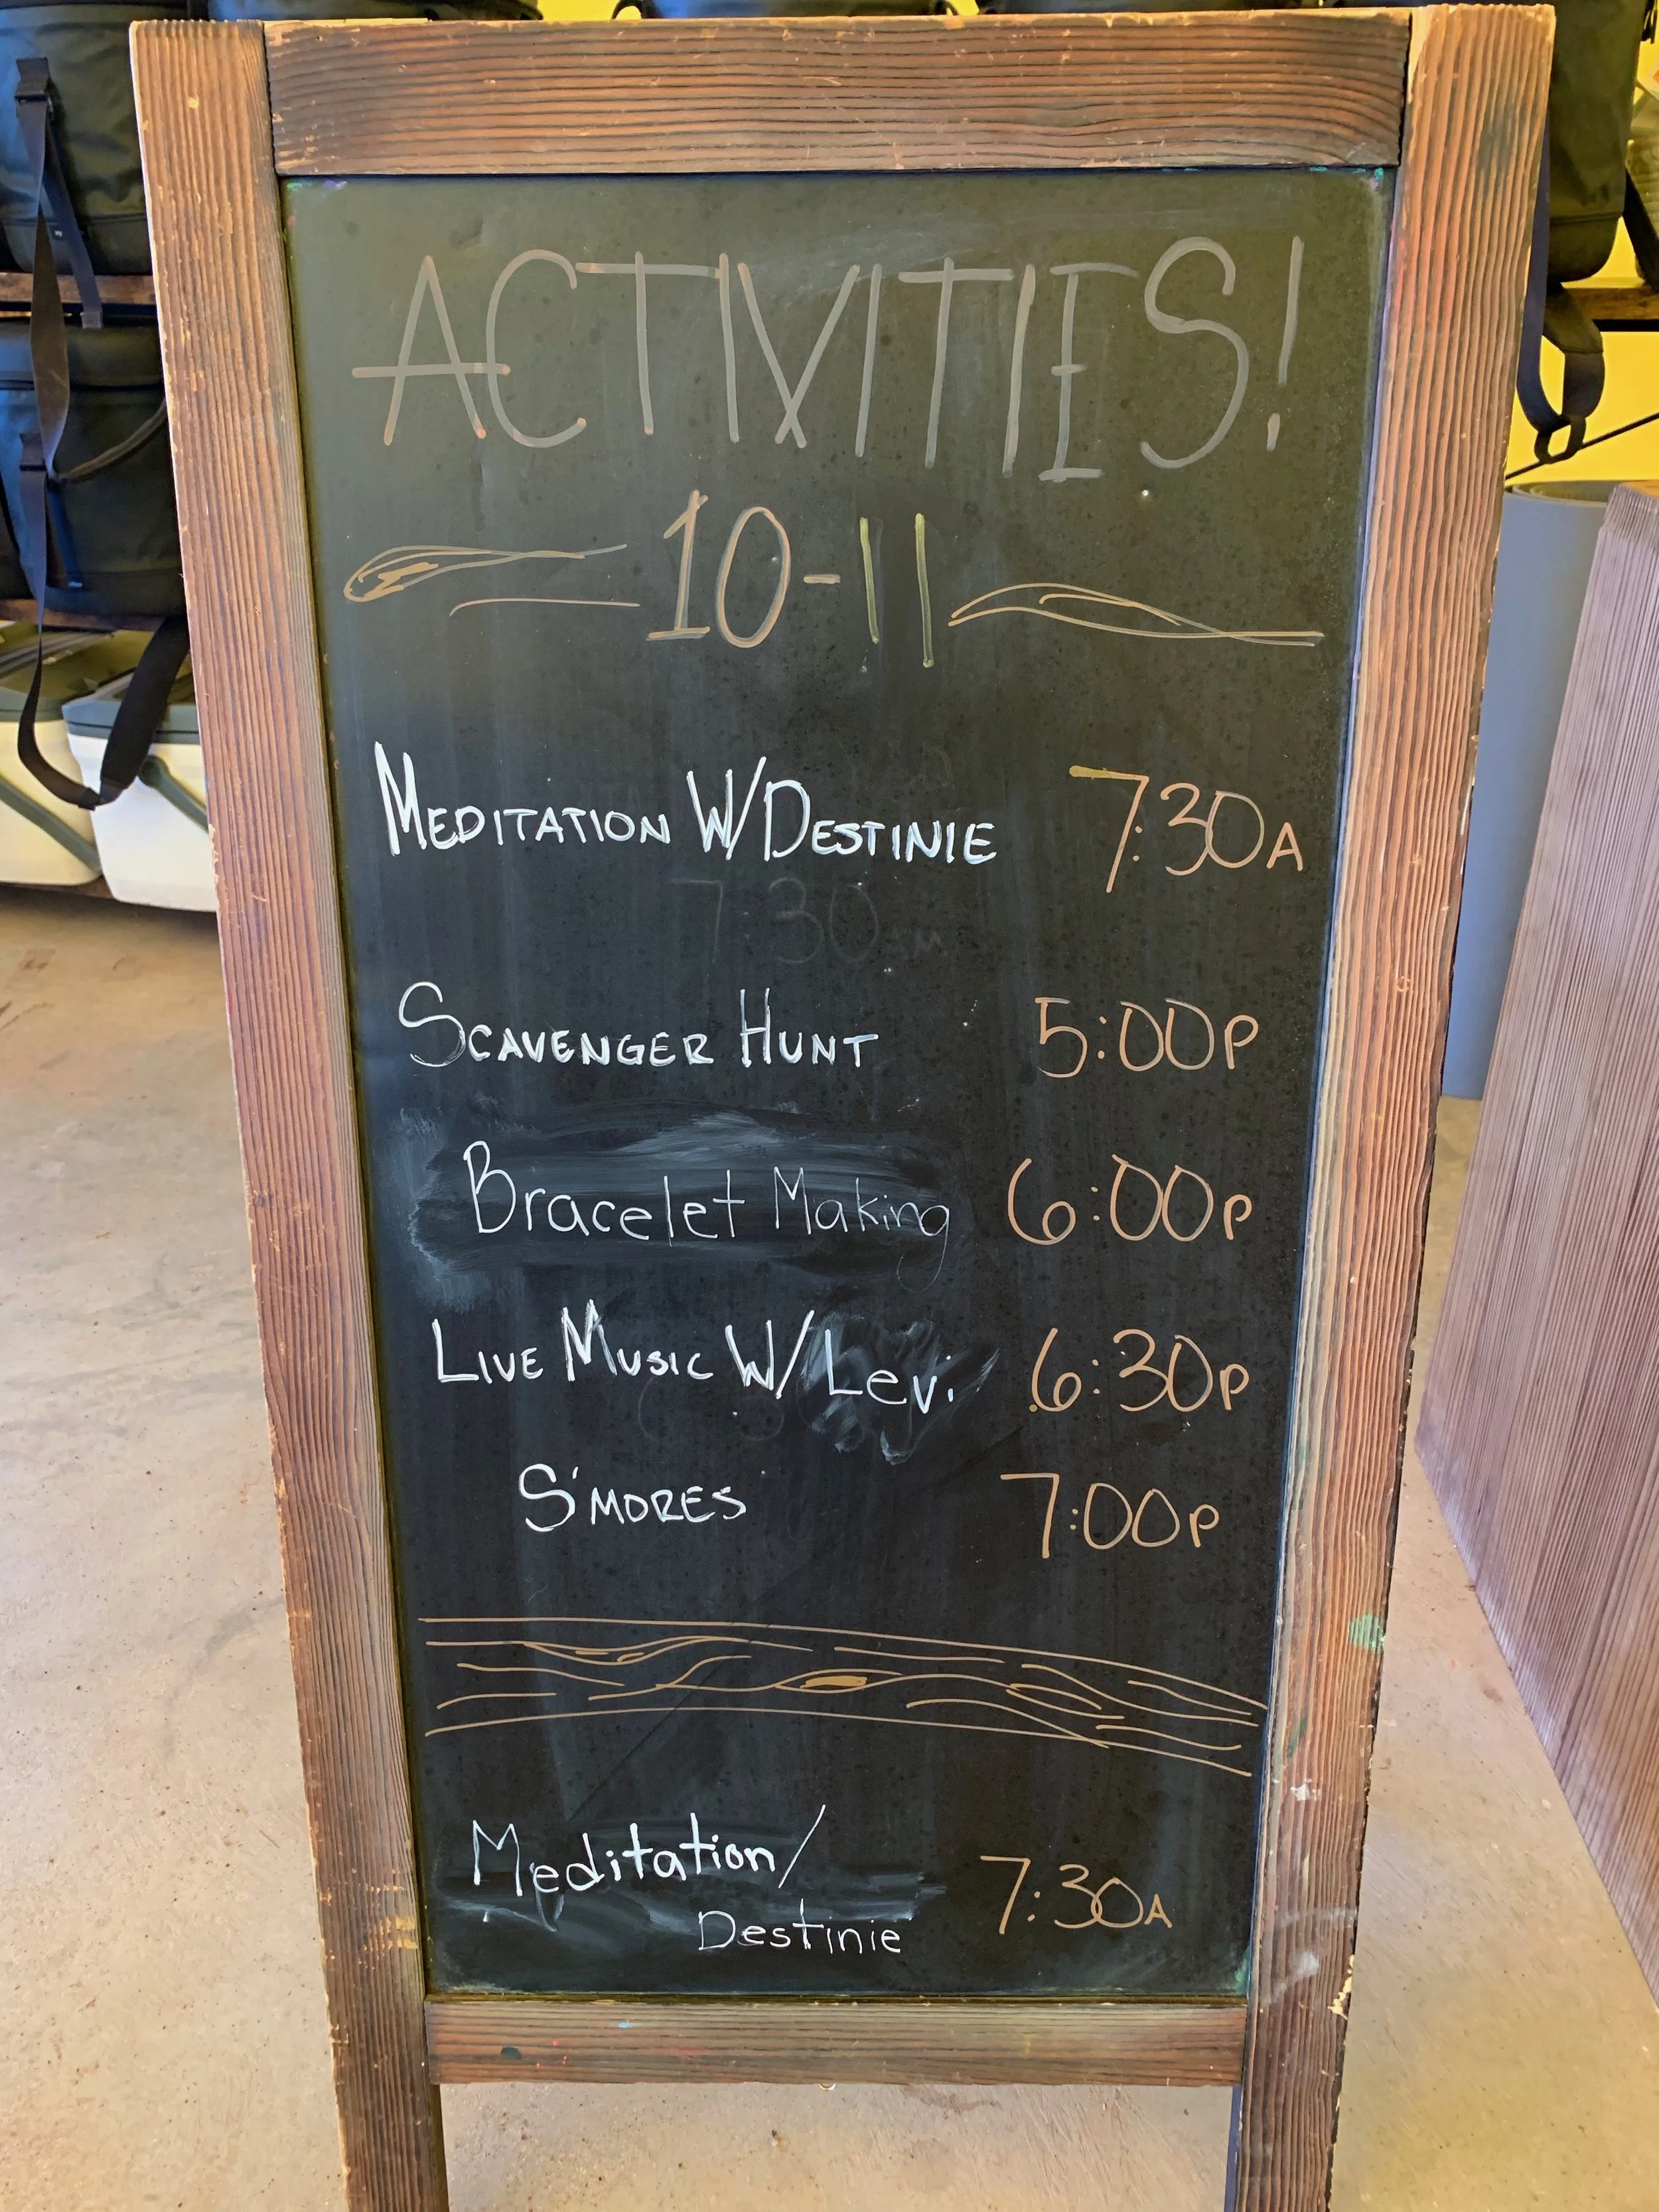 ACTIVITIES!
10-11
MEDITATION W/DESTINIE 7:30A
7:30AM
SCAVENGER HUNT 5:00P
Bracelet Making 6:00P
LIVE MUSIC W/ Levi 6:30P
S'MORES 7:00P
Meditation/
Destinie 7:30A